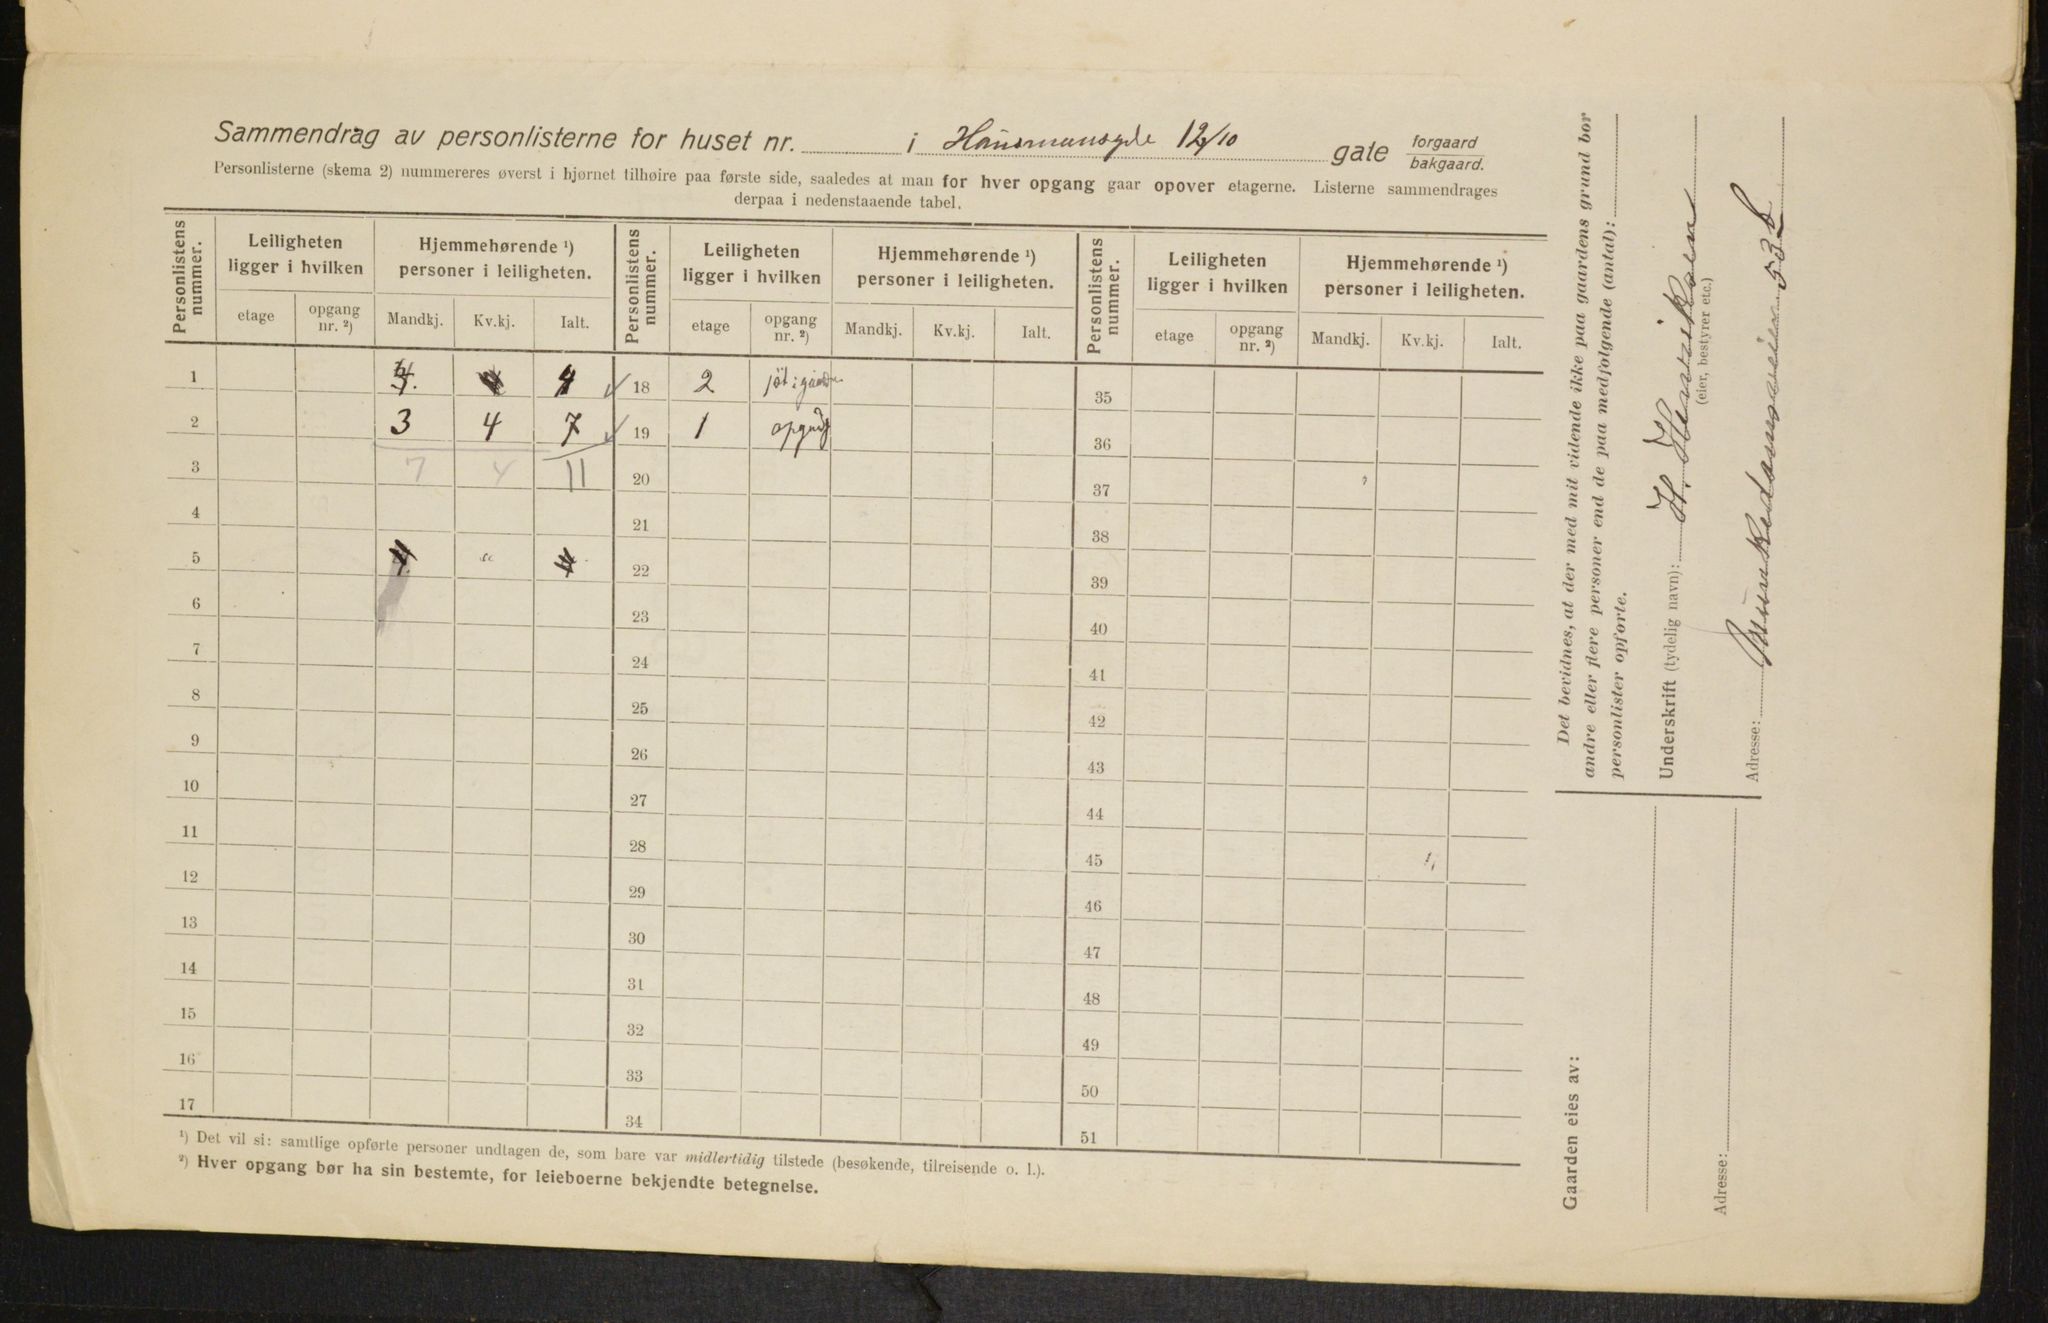 Sammendrag av personlisterne for huset nr. i Hausmansgde 12/10 gate forgaard bakgaard.
Personlisterne (skema 2) nummereres øverst i hjørnet tilhøire paa første side, saaledes at man for hver opgang gaar opover etagerne. Listerne sammendrages
derpaa i nedenstaaende tabel.
Personlistens nummer. Leiligheten ligger i hvilken Hjemmehørende ¹) personer i leiligheten. Personlistens nummer. Leiligheten ligger i hvilken Hjemmehørende ¹) personer i leiligheten. Personlistens nummer. Leiligheten ligger i hvilken Hjemmehørende ¹) personer i leiligheten.
etage opgang nr. ²) Mandkj. Kv.kj. Ialt. etage opgang nr. ²) Mandkj. Kv.kj. Ialt. etage opgang nr. ²) Mandkj. Kv.kj. Ialt.
1 4 4 18 2 35
2 3 4 7 19 1 36
3 7 4 11 20 37
4 21 38
5 4 " 4 22 39
6 23 40
7 24 41
8 25 42
9 26 43
10 27 44
11 28 45
12 29 46
13 30 47
14 31 48
15 32 49
16 33 50
17 34 51
¹) Det vil si: samtlige opførte personer undtagen de, som bare var midlertidig tilstede (besøkende, tilreisende o. l.).
²) Hver opgang bør ha sin bestemte, for leieboerne bekjendte betegnelse.
Det bevidnes, at der med mit vidende ikke paa gaardens grund bor
andre eller flere personer end de paa medfølgende (antal):
personlister opførte.
Underskrift (tydelig navn): H. Henriksen
(eier, bestyrer etc.)
Adresse: 53 b
Gaarden eies av:
Adresse: